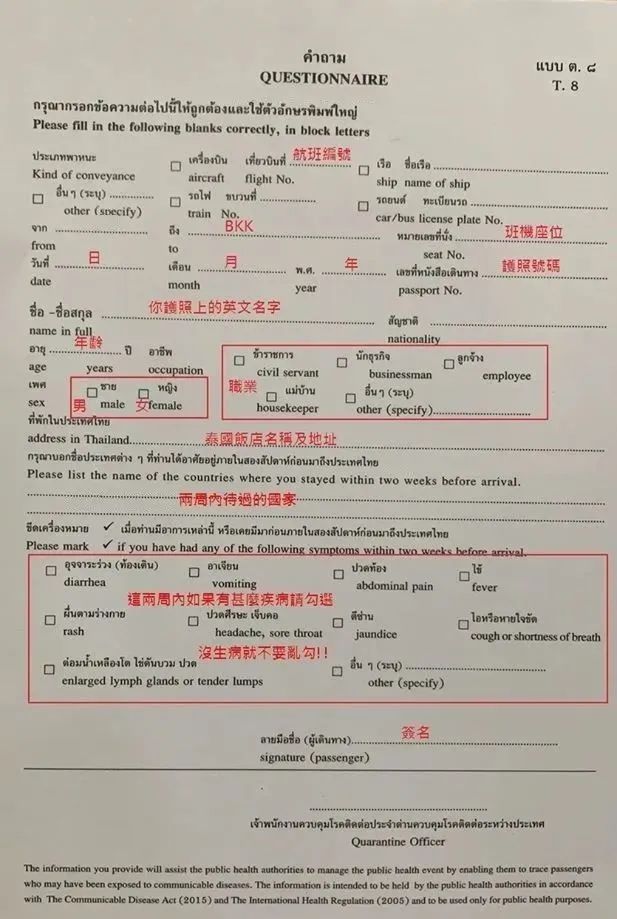 คำถาม
แบบ ต. ๘
QUESTIONNAIRE
T. 8
กรุณากรอกข้อความต่อไปนี้ให้ถูกต้องและใช้ตัวอักษรพิมพ์ใหญ่
Please fill in the following blanks correctly, in block letters
ประเภทพาหนะ เครื่องบิน เที่ยวบินที่ 航班編號 เรือ ชื่อเรือ
Kind of conveyance aircraft flight No. ship name of ship
อื่น ๆ (ระบุ) รถไฟ ขบวนที่ รถยนต์ ทะเบียนรถ
other (specify) train No. car/bus license plate No.
จาก ถึง BKK หมายเลขที่นั่ง 班機座位
from to seat No.
วันที่ 日 เดือน 月 พ.ศ. 年 เลขที่หนังสือเดินทาง 護照號碼
date month year passport No.
ชื่อ -ชื่อสกุล 你護照上的英文名字 สัญชาติ
name in full nationality
อายุ 年齡 ปี อาชีพ ข้าราชการ นักธุรกิจ ลูกจ้าง
age years occupation civil servant businessman employee
เพศ ชาย หญิง 職業 แม่บ้าน อื่น ๆ (ระบุ)
sex 男 male 女 female housekeeper other (specify)
ที่พักในประเทศไทย
address in Thailand 泰國飯店名稱及地址
กรุณาบอกชื่อประเทศต่าง ๆ ที่ท่านได้อาศัยอยู่ภายในสองสัปดาห์ก่อนมาถึงประเทศไทย
Please list the name of the countries where you stayed within two weeks before arrival.
兩周內待過的國家
ขีดเครื่องหมาย ✓ เมื่อท่านมีอาการเหล่านี้ หรือเคยมีมาก่อนภายในสองสัปดาห์ก่อนมาถึงประเทศไทย
Please mark ✓ if you have had any of the following symptoms within two weeks before arrival.
อุจจาระร่วง (ท้องเดิน) อาเจียน ปวดท้อง ไข้
diarrhea vomiting abdominal pain fever
這兩周內如果有甚麼疾病請勾選
ผื่นตามร่างกาย ปวดศีรษะ เจ็บคอ ดีซ่าน ไอหรือหายใจขัด
rash headache, sore throat jaundice cough or shortness of breath
ต่อมน้ำเหลืองโต ไข่ดันบวม ปวด 沒生病就不要亂勾!! อื่น ๆ (ระบุ)
enlarged lymph glands or tender lumps other (specify)
ลายมือชื่อ (ผู้เดินทาง) 簽名
signature (passenger)
เจ้าพนักงานควบคุมโรคติดต่อประจำด่านควบคุมโรคติดต่อระหว่างประเทศ
Quarantine Officer
The information you provide will assist the public health authorities to manage the public health event by enabling them to trace passengers
who may have been exposed to communicable diseases. The information is intended to be held by the public health authorities in accordance
with The Communicable Disease Act (2015) and The International Health Regulation (2005) and to be used only for public health purposes.